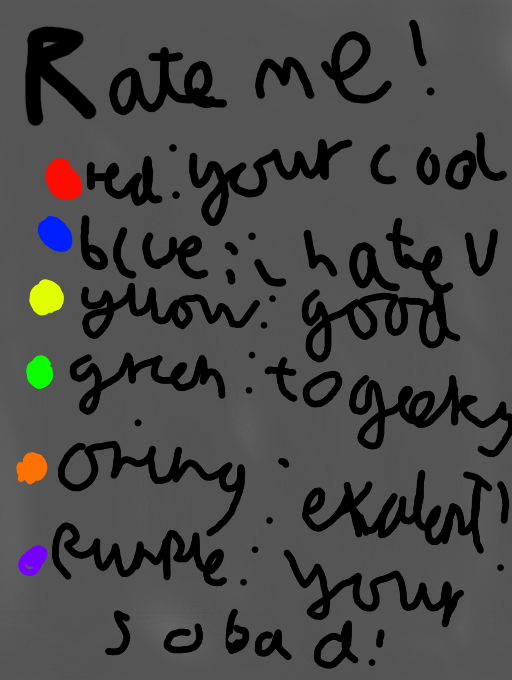 Rate me!
red: your cool
blue: i hate U
yllow: good
green: to geeky
oring: exalent!
Purple: your
so bad!